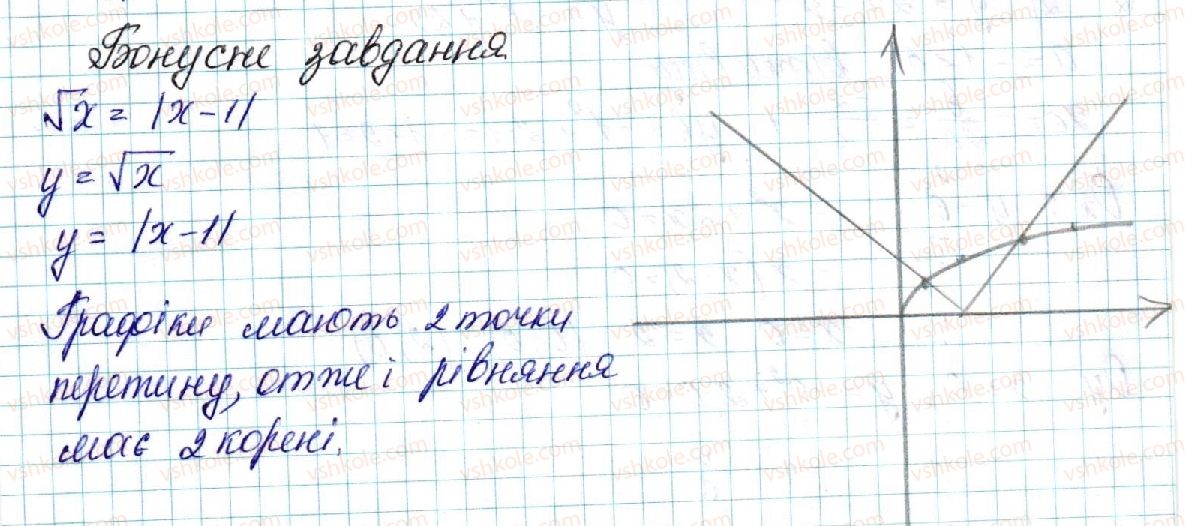 Бонусне завдання
√x = |x-1|
y = √x
y = |x-1|
Графіки мають 2 точки
перетину, отже і рівняння
має 2 корені.